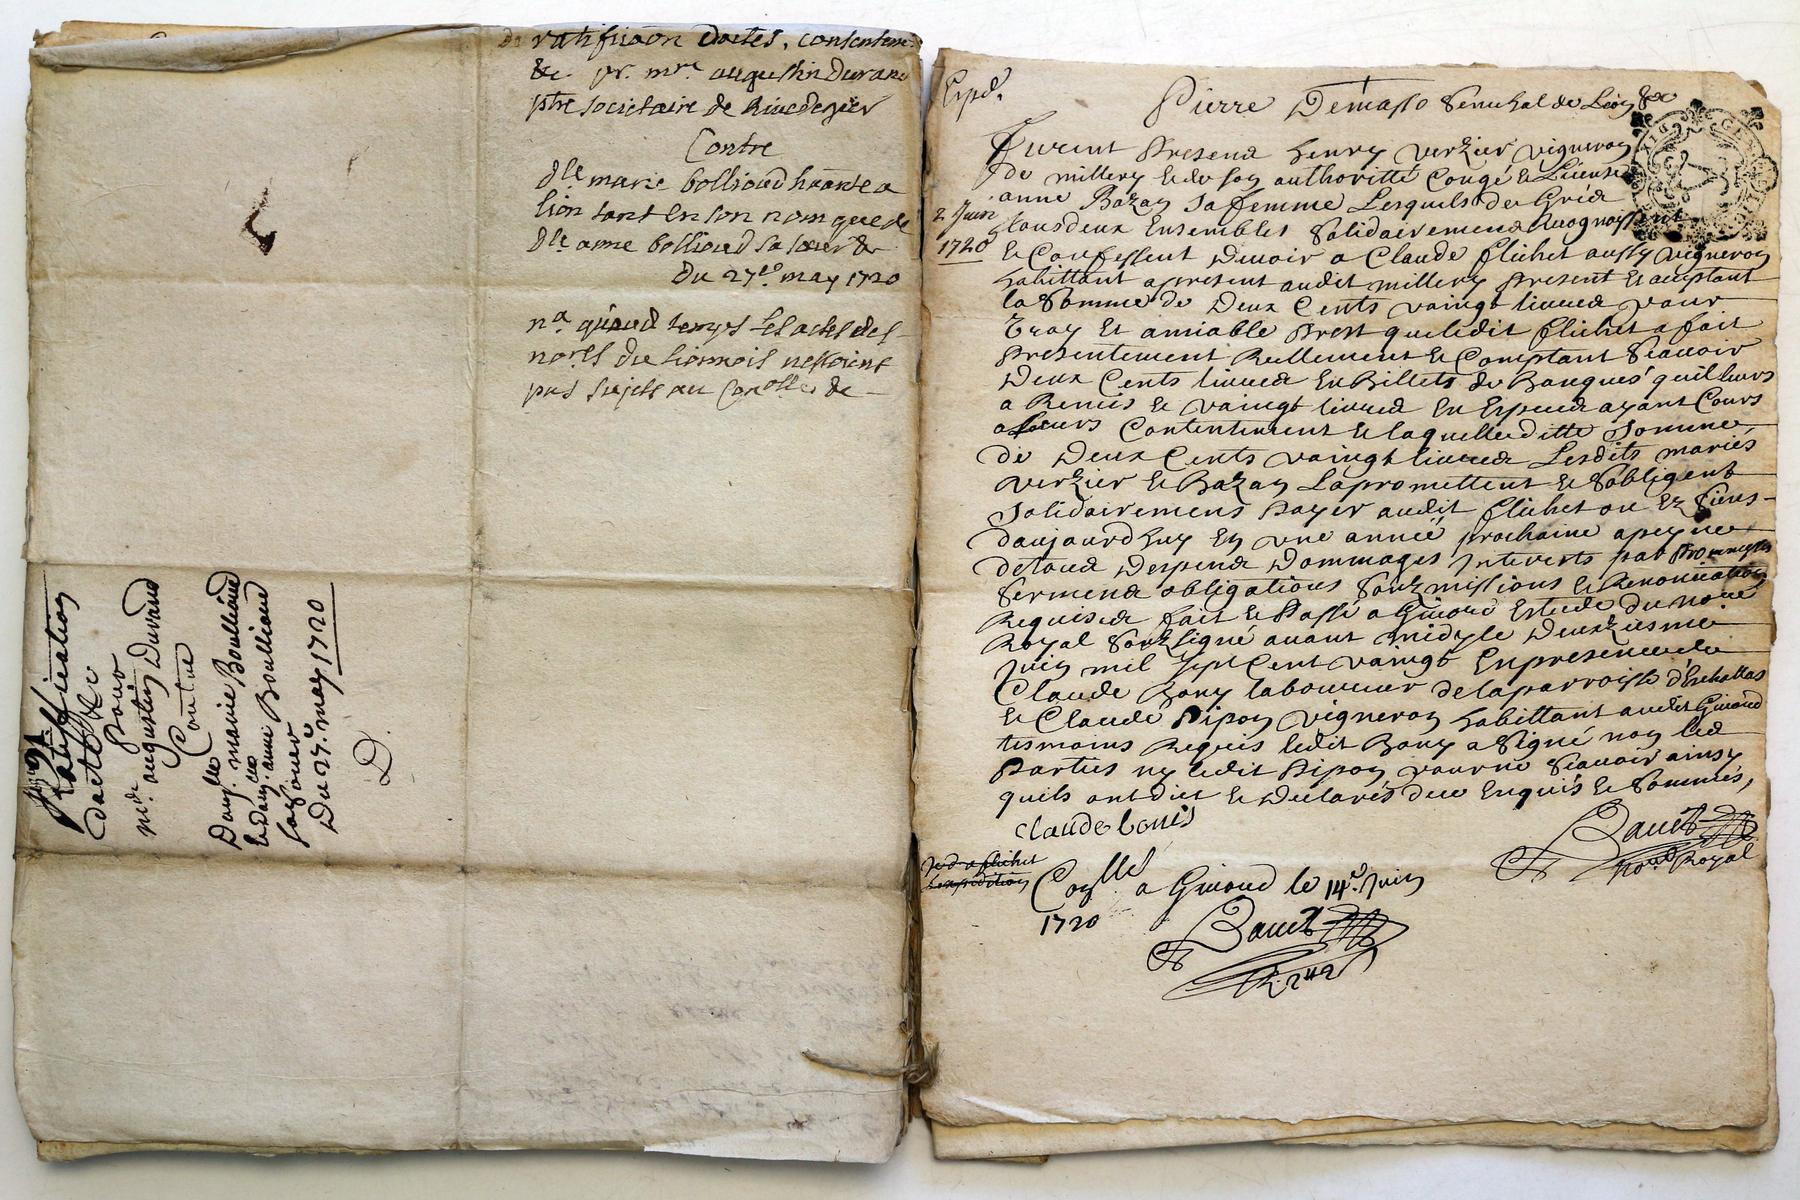 De ratifîcaon dactes, consentem.
&c. pr. mre. augustin durand
ptre societaire de Rivedegier
Contre
dlle marie bollioud hãnte a
lion tant en son nom que de
dlle anne bollioud sa sœur &
du 27e. may 1720
na. qu'aud temps les actes des
nores du lionnois nestoient
pas sujets au Conolle. de
27 may
Ratiffication
dacte &c
Pour
me. augustin Durand
Contre
Damlle marie Boullioud
et Damlle anne Boullioud
sa sœur
Du 27e. may 1720
D.
Expd.
Pierre Demasso Senechal de Lion &c
Furent Presens henry verzier vigneron
de millery & de son authoritté Congé & License
anne Bazan sa femme Lesquels de Gré &
2 Juin
1720
tous deux Ensembles Solidairement Recognoissent
& Confessent devoir a Claude flichet aussy vigneron
habittant apresent audit millery Present & acceptant
la Somme de Deux Cents vaingt livres pour
vray Et amiable Prest que ledit flichet a fait
Presentement Reellement & Comptant Scavoir
Deux Cents livres En Billets de Banques qu'il leurs
a Remis & vaingt livres En Especes ayant Cours
a leurs Contentement & laquelle ditte Somme
de Deux Cents vaingt livres Lesdits mariés
verzier & Bazan La promettent & S'obligent
Solidairement Payer audit flichet ou Ez Siens
daujourdhuy En une année prochaine apeyne
de tous Despens Dommages Interests par Promesses
Serment obligations Soubzmissions & Renonciations
Requises fait & Passé a Givord Estude du nore.
Royal Soubzsigné avant midy le Deuxziesme
Juin mil Sept Cent vaingt En presence de
Claude Bony laboureur de la parroisse d'Eschallas
& Claude Pipon vigneron habittant audit Givord
tesmoins Requis ledit Bony a Signé non les
Parties ny ledit Pipon pour ne Scavoir ainsy
quils ont dict & Declarés de ce Enquis & Sommés,
claude bonis
Bauet
nore. Royal
Expedition
Conlle a Givord le 14e. Juin
1720
Bauet